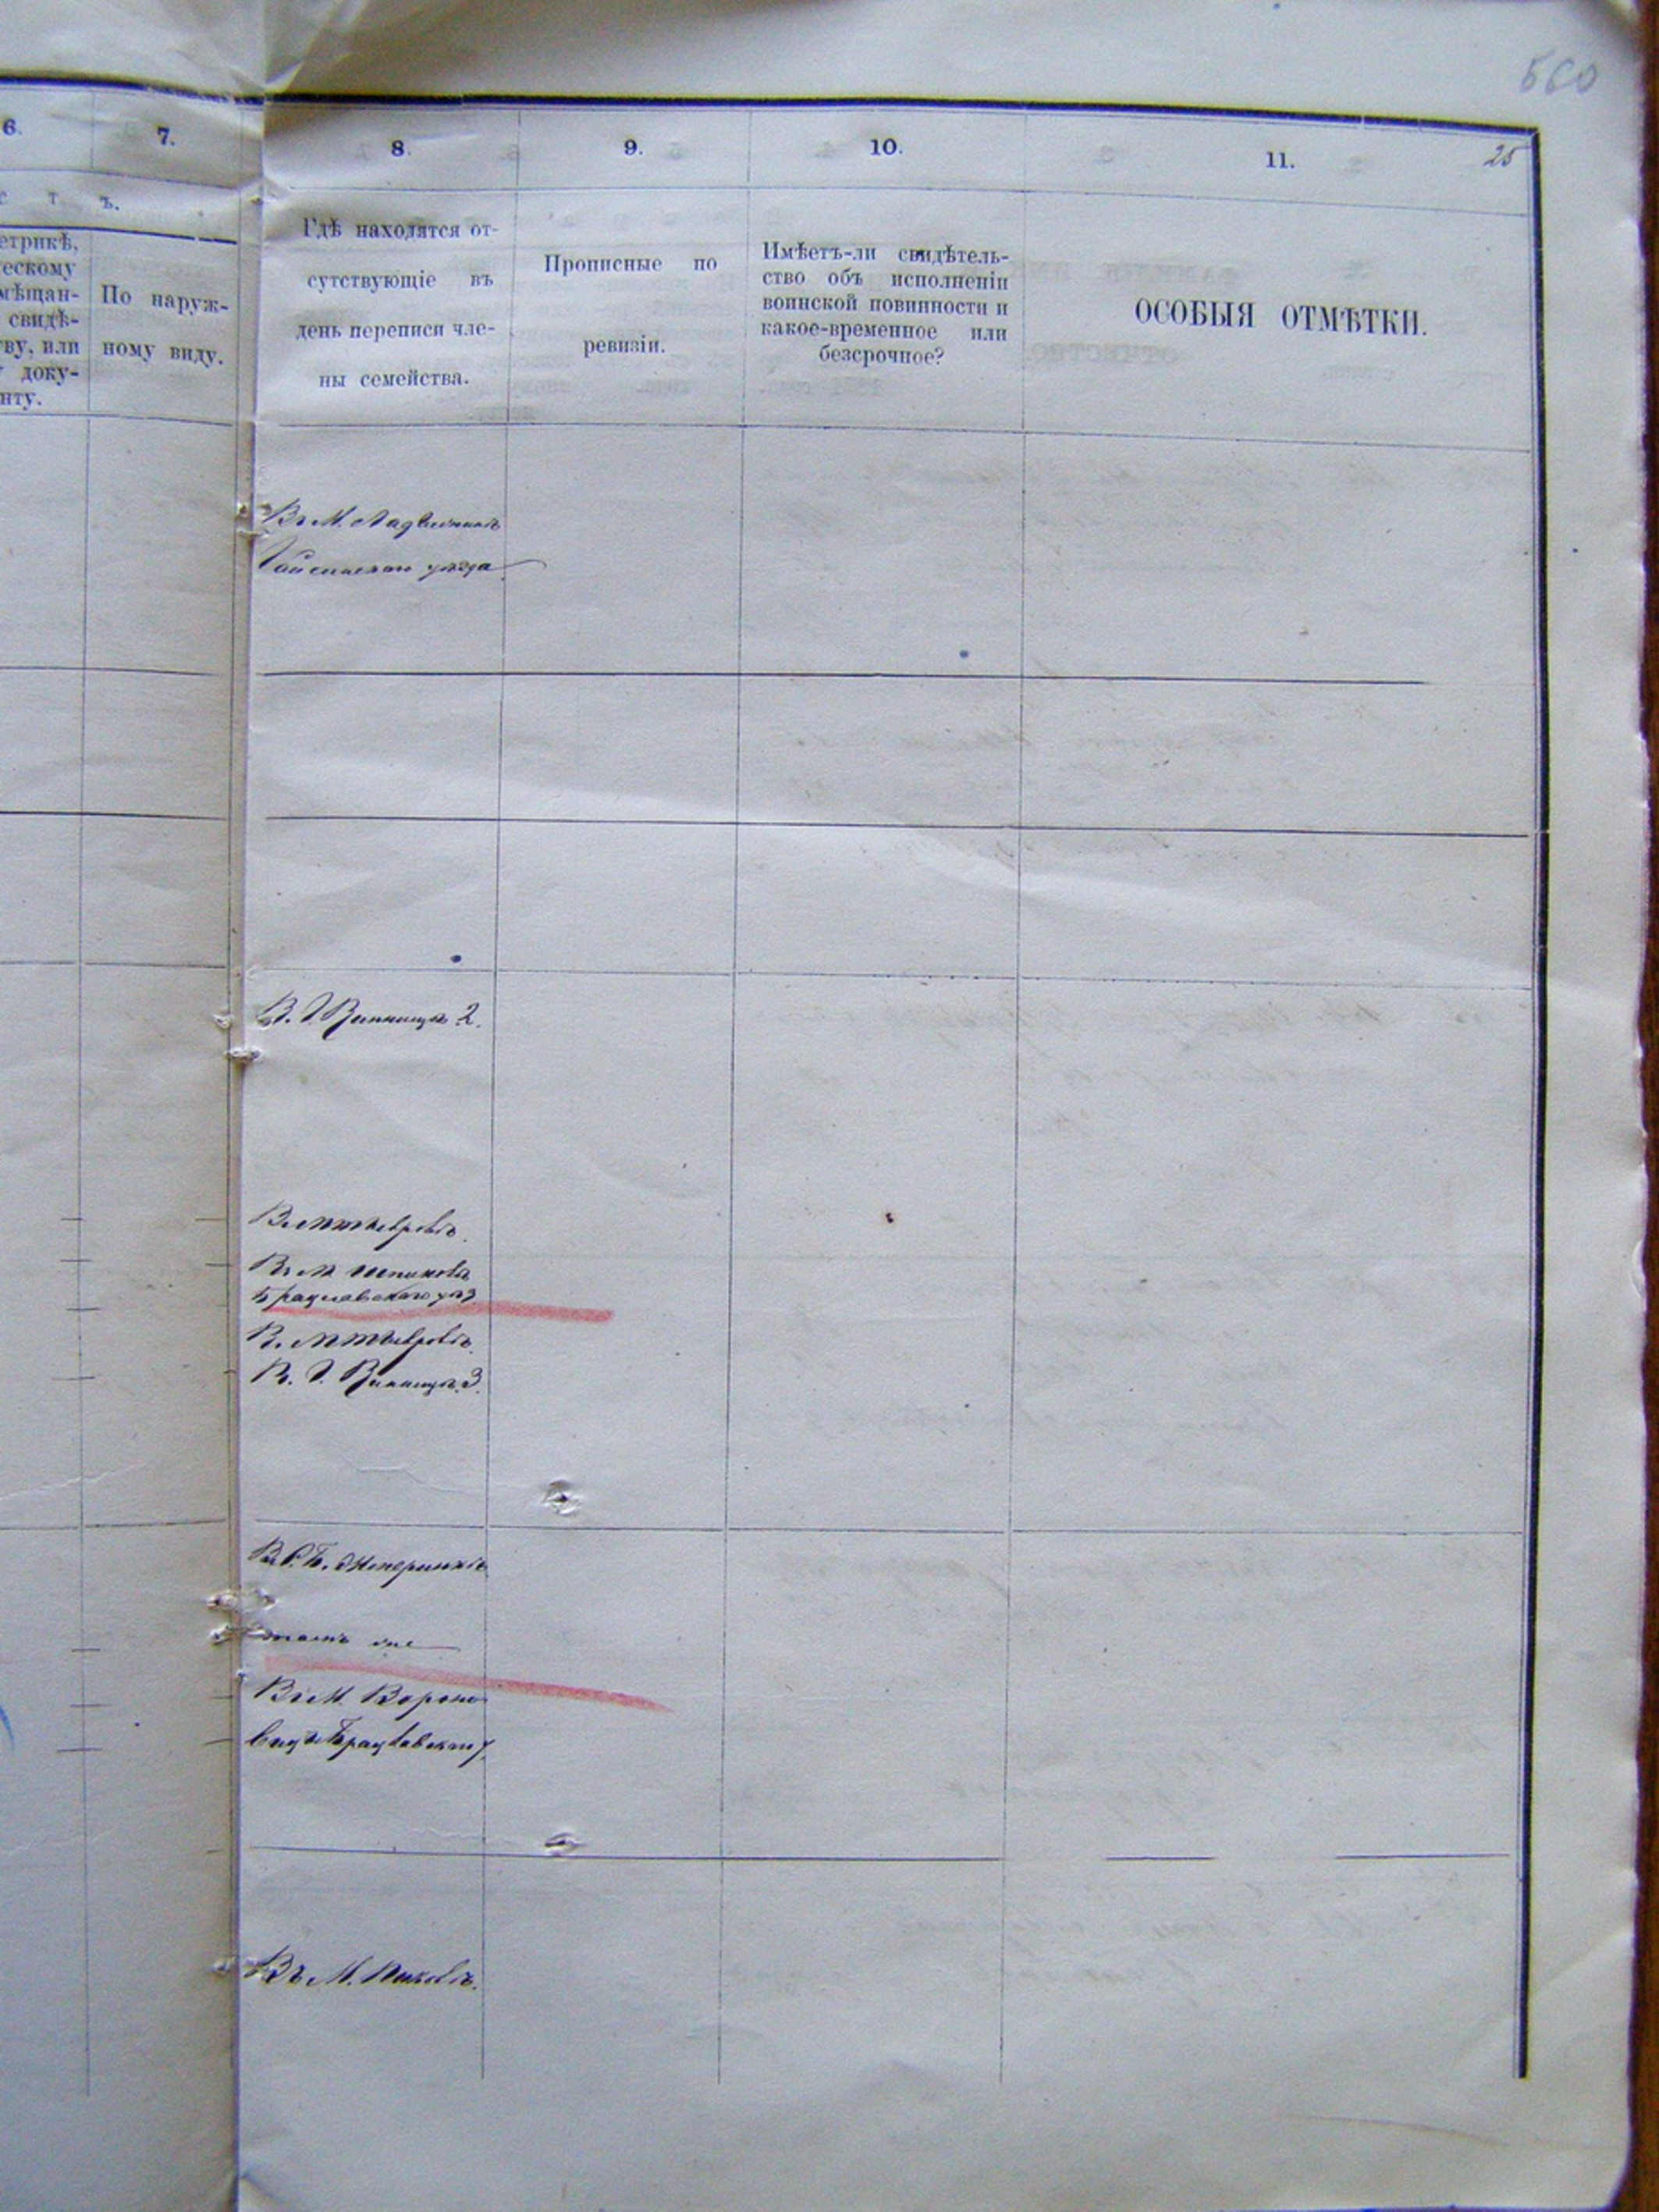 560
6. 7. 8. 9. 10. 11. 25
с т ъ.
етрикѣ,
ескому
мѣщан-
свидѣ-
ву, или
доку-
нту.
По наруж-
ному виду.
Гдѣ находятся от-
сутствующіе въ
день переписи чле-
ны семейства.
Прописные по
ревизіи.
Имѣетъ-ли свидѣтель-
ство объ исполненіи
воинской повинности и
какое-временное или
безсрочное?
ОСОБЫЯ ОТМѢТКИ.
Въ М.
Гайсинскаго уѣзда
В. Г. Винницѣ 2.
Въ М. Шпиковѣ
Брацлавскаго уѣз
В. Г. Винницѣ 3.
тамъ же
Въ М. Вороно
вицѣ Брацлавскаго у.
Въ М. Пиковѣ.